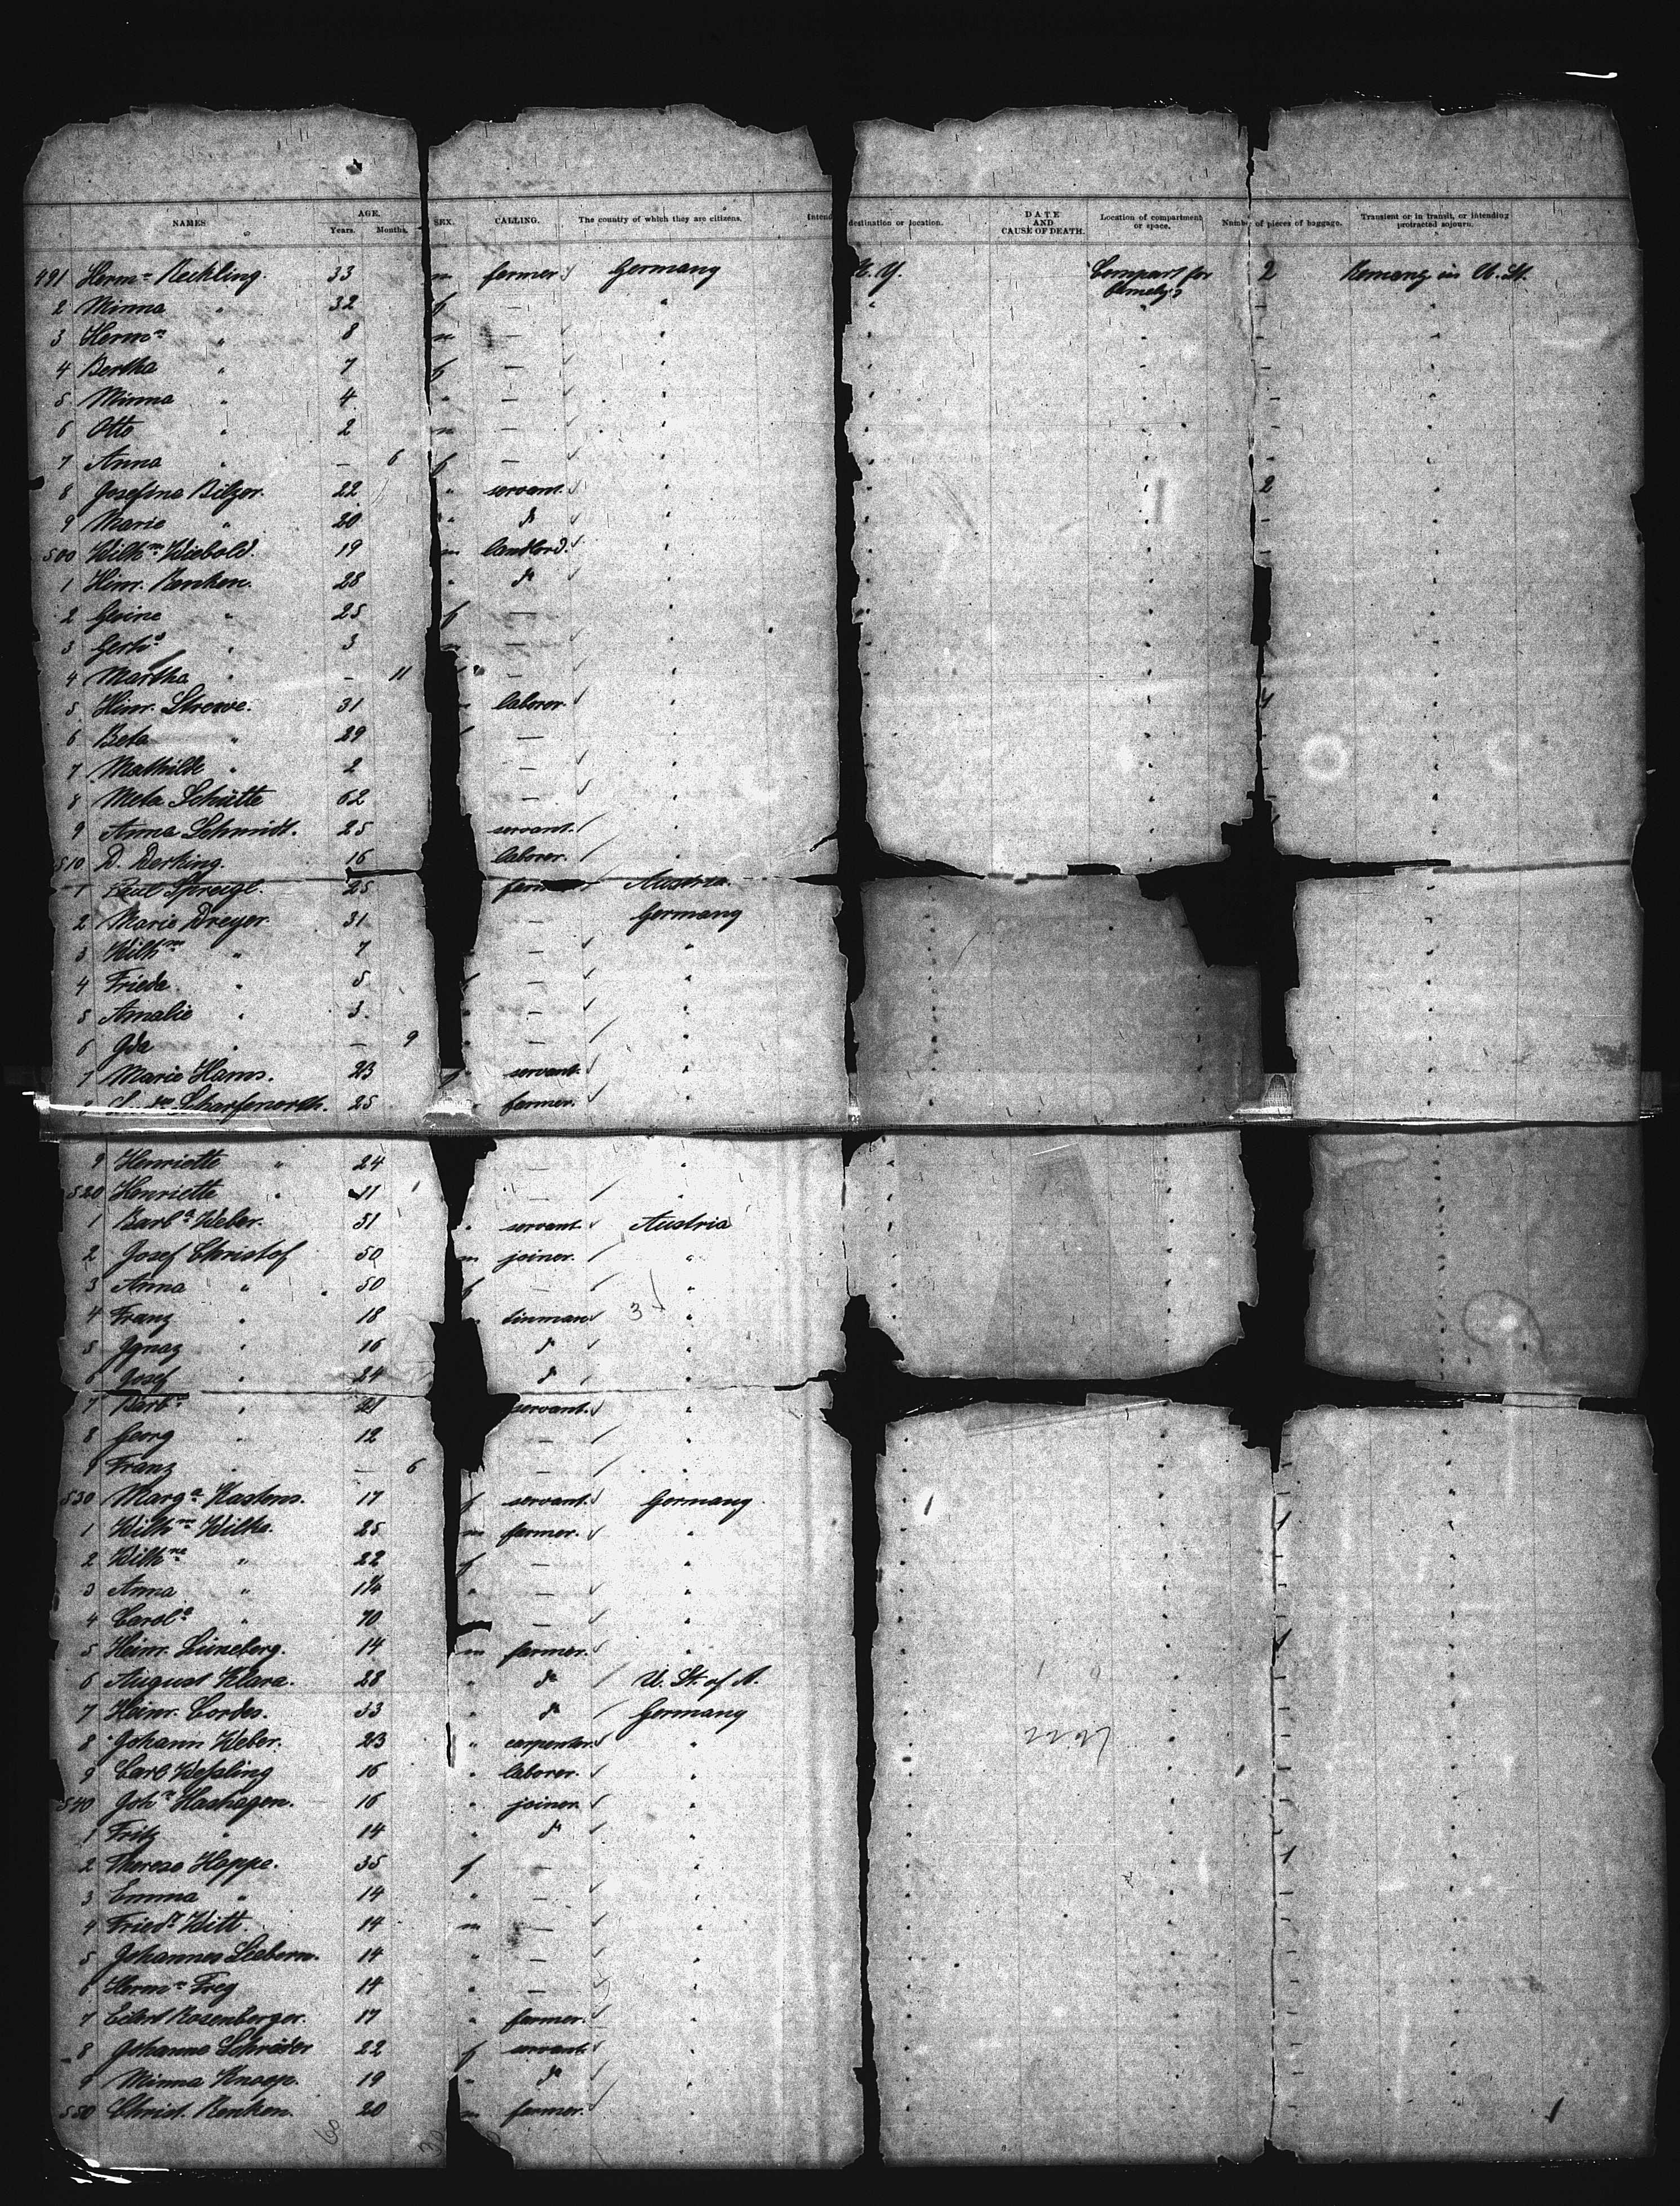 NAMES AGE. Years. Months. SEX. CALLING. The country of which they are citizens. Intend destination or location. DATE AND CAUSE OF DEATH. Location of compartment or space. Number of pieces of baggage. Transient or in transit, or intending protracted sojourn.
491 Herm n Rechling. 33 m farmer Germany N. Y. Compart for 2 Remang in U. St.
2 Minna " 32 f — "
3 Herm n " 8 m — "
4 Bertha " 7 f — "
5 Minna " 4 " — "
6 Otto " 2 m — "
7 Anna " — 6 f — "
8 Josefine Bilzer. 22 " servant. " 2
9 Marie " 20 " do "
500 Wilh m Wiebold. 19 m landlord. "
1 Hinr. Renken. 28 " do "
2 Gesine " 25 f — "
3 Gerh d " 3 m — "
4 Martha " — 11 — "
5 Hinr. Strewe. 31 laborer. " 4
6 Beta " 29 — "
7 Mathilde " 2 — "
8 Meta Schütte 62 — "
9 Anna Schmidt. 25 servant. "
510 D. Derking. 16 laborer. "
1 Paul Spreigl. 25 farmer Austria.
2 Marie Dreyer. 31 — Germany
3 Wilh m " 7 — "
4 Frieda " 5 — "
5 Amalie " 3. — "
6 Ida " — 9 — "
7 Marie Harms. 23 f servant. "
8 Scharfenorth. 25 farmer. "
9 Henriette " 24 — "
520 Henriette " 11 — "
1 Barb a Weber. 51 " servant Austria
2 Josef Christof 50 m joiner. "
3 Anna " 50 f — "
4 Franz " 18 tinman 3 "
5 Ignaz " 16 do "
6 Josef " 24 do "
7 Barb a " 21 servant. "
8 Georg " 12 — "
9 Franz " — 6 — "
530 Marg a Kastens. 17 f servant. Germany
1 Wilh m Wilke. 25 m farmer. " 1
2 Wilh ne " 22 f — "
3 Anna " 1¼ " — "
4 Carol a " 70 — "
5 Heinr. Lüneberg. 14 m farmer. " 1
6 August Klara. 28 " do U. St. of A.
7 Heinr. Cordes. 33 " do Germany
8 Johann Weber. 23 " carpenter. "
9 Carl Weßling 16 " laborer. "
540 Joh n Hashagen. 16 " joiner "
1 Fritz " 14 " do "
2 Therese Hoppe. 35 f — " 1
3 Emma " 14 " — "
4 Fried r Witt. 14 m — "
5 Johannes Liebern. 14 " — "
6 Herm n Frey 14 " — "
7 Edert Rosenberger. 17 " farmer. "
8 Johanne Schröder 22 f servant "
9 Minna Knoop. 19 " do "
550 Christ. Renken. 20 m farmer. "